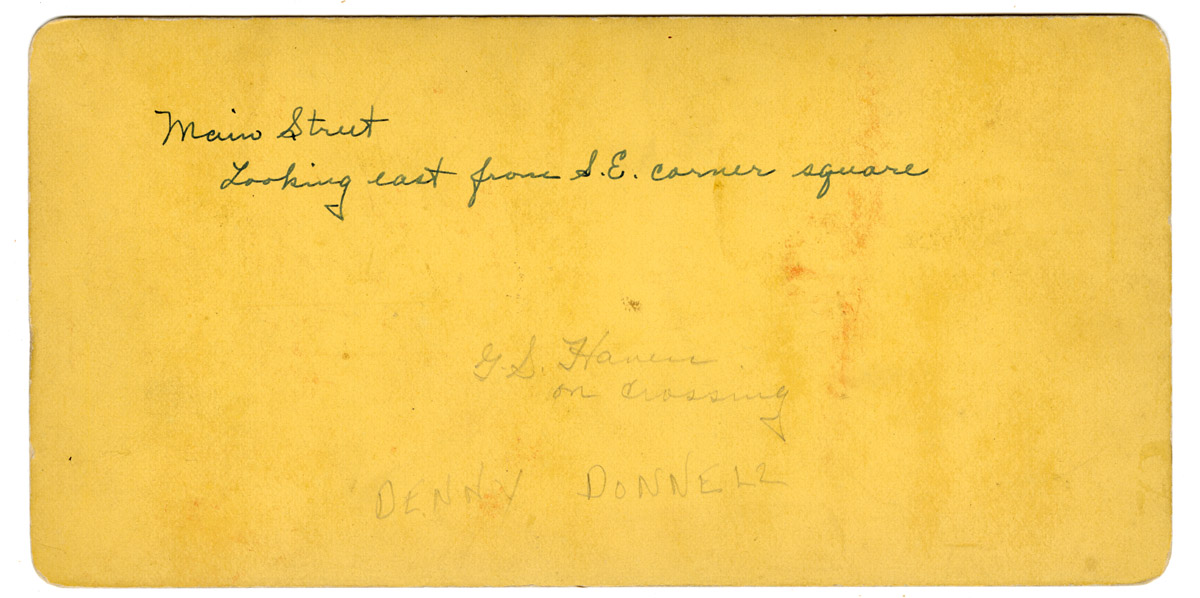 Main Street
Looking east from S.E. corner square
G.S. Haven
on crossing
DENNY DONNELL